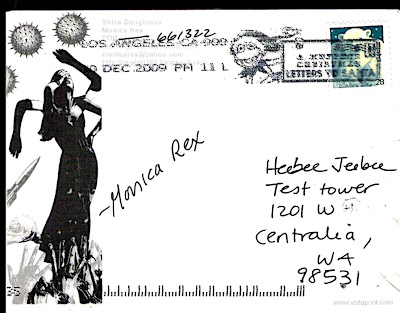 Shiva Daughterz
Monica Rex
661322
LOS ANGELES CA 900
DEC 2009 PM 11 L
LETTERS TO SANTA
USA 28
-Monica Rex
Heebee Jeebee
Test tower
1201 W
Centralia,
WA
98531
www.vistaprint.com